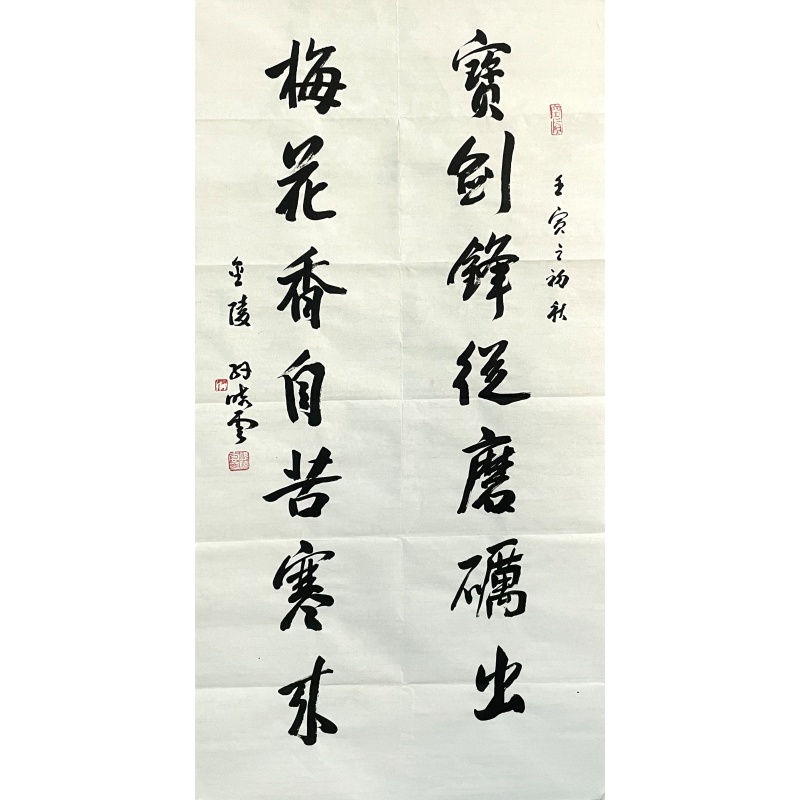 壬寅之初秋
寶劍鋒從磨礪出
梅花香自苦寒來
金陵 孫曉雲